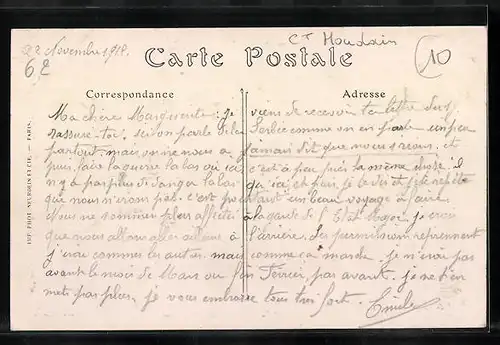 22 Novembre 1918.
62
Ct Houdain
10
Carte Postale
Correspondance
Adresse
Ma chère Marguerite. Je viens de recevoir ta lettre du
rassure-toi, si on parle de la Serbie comme on en parle un peu
partout, mais on ne nous a jamais dit que nous irions. et
puis faire la guerre la bas où ici c'est à peu près la même chose. il
n'y a pas plus de danger la bas qu'ici, et puis je te dis et je te répète
que nous n'irons pas. c'est pourtant un beau voyage à faire
Nous ne sommes plus affectés à la garde de l'Etat Major. je crois
que nous allons aller ailleurs à l'arrière. Les permissions reprennent
j'irai comme les autres. mais comme ça marche. je n'irai pas
avant le mois de Mars ou fin Février, pas avant. je ne t'en
mets pas plus. je vous embrasse tous très fort. Emile
IMP. PHOT. NEURDEIN ET CIE. — PARIS.